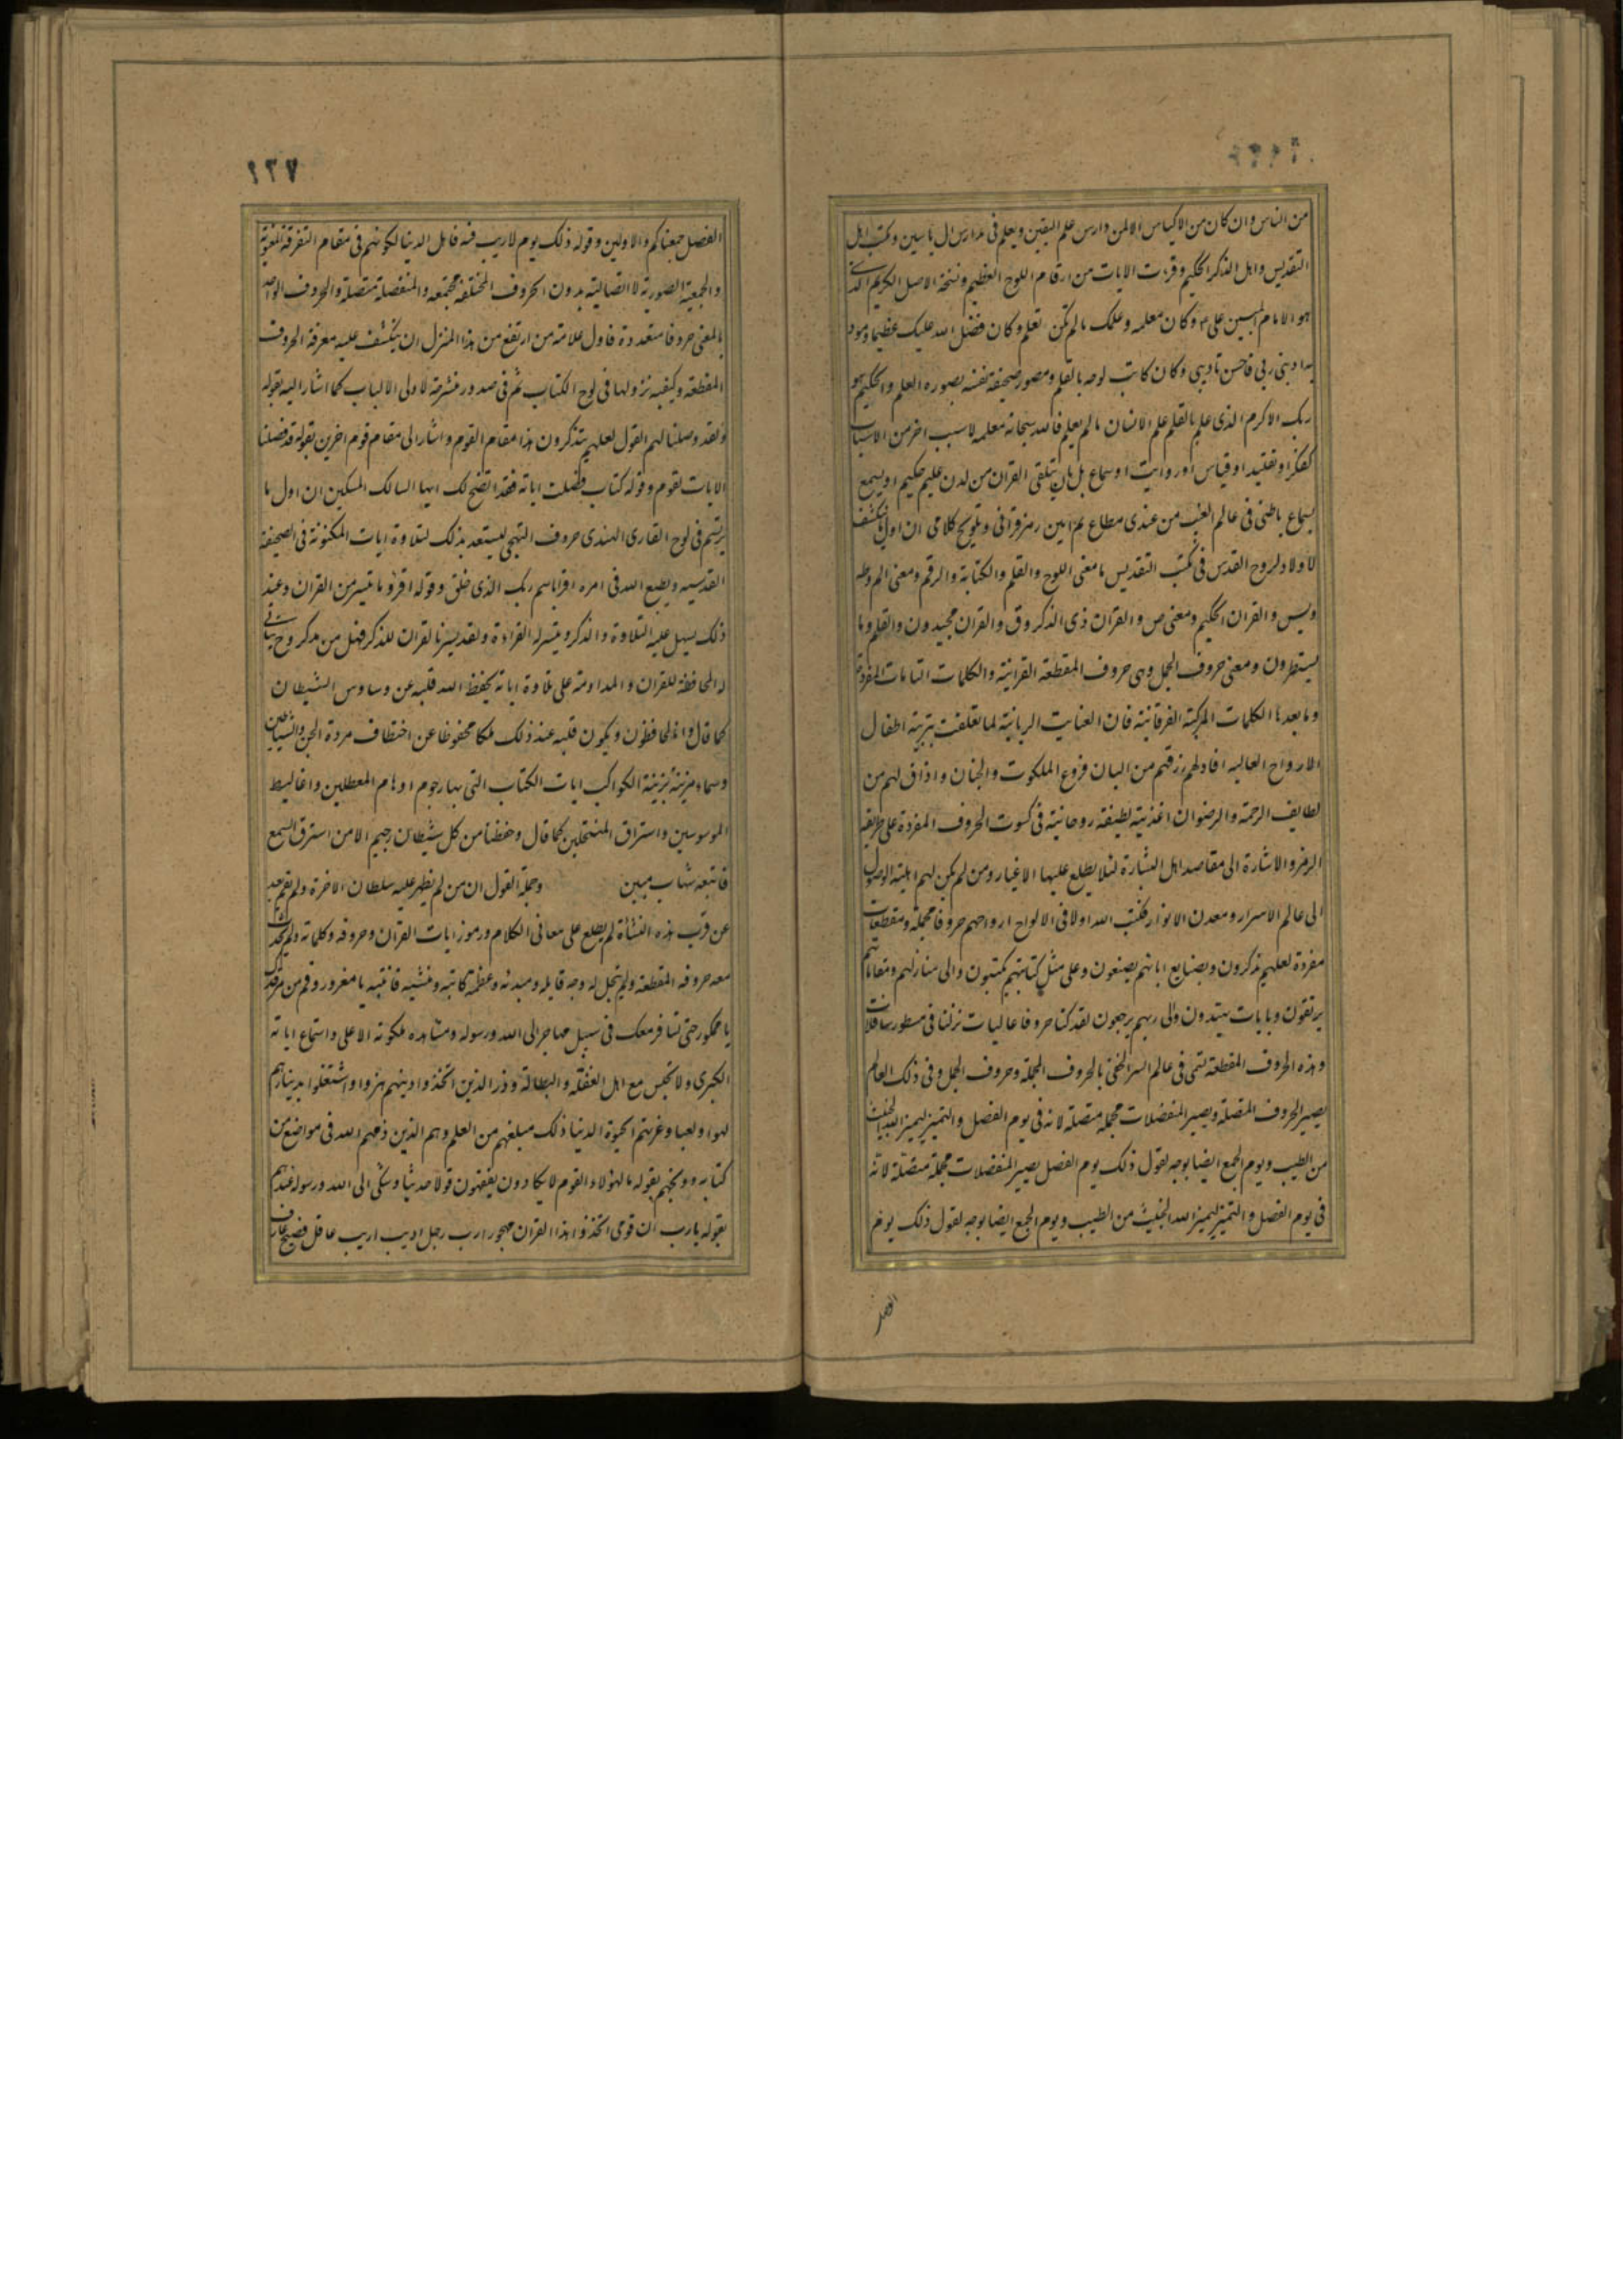 من الناس وان كان من الاكياس الا لمن دارس علم اليقين ويعلم فى مدارس ال ياسين ومكتب اهل
التقديس واهل الذكر الحكيم وقرءت الايات من ارقام اللوح العظيم ونسخة الاصل الكريم الذى
هو الامام المبين على وكان معلمه وعلمك ما لم تكن تعلم وكان فضل الله عليك عظيما ومودبه
ادبنى ربى فاحسن تاديبى وكان كاتب لوحه بالقلم ومصور صحيفة نفسه بصوره العلم والحكيم هو
ربك الاكرم الذى علم بالقلم علم الانسان ما لم يعلم فالله سبحانه معلمه لا سبب اخر من الاسباب
كفكر او تقليد او قياس او روايت او سماع بل بان يتلقى القران من لدن عليم حكيم او يسمع
بسماع باطنى فى عالم الغيب من عندى مطاع ثم امين رمز قرانى وتلويح كلامى ان اول ما ينكشف
لاولاد لروح القدس فى مكتب التقديس ما معنى اللوح والقلم والكتابة والرقم ومعنى الم وطه
ويس والقران الحكيم ومعنى ص والقران ذى الذكر وق والقران مجيد ون والقلم وما
يسطرون ومعنى حروف الجمل وهى حروف المقطعة القرانية والكلمات التامات المفردة
وما بعدها الكلمات المركبة الفرقانية فان العنايت الربانية لما تعلقت بتربية اطفال
الارواح العاليه افاد لهم رزقهم من البان فروع الملكوت والجنان واذاق لهم من
لطايف الرحمة والرضوان اغذية لطيفة روحانية فى كسوت الحروف المفردة على طريقه
الرمز والاشارة الى مقاصد اهل البشارة لئلا يطلع عليها الاغيار ومن لم يكن لهم اهلية الوصول
الى عالم الاسرار ومعدن الانوار فكتب الله اولا فى الالواح ارواحهم حروفا مجملة ومقطعات
مفردة لعلهم يذكرون وبصنايع ابائهم يصنعون وعلى مثل كتابتهم يكتبون والى منازلهم ومقاماتهم
يرتقون وبايات يهتدون والى ربهم يرجعون لقد كنا حروفا عاليات نزلنا فى سطور سافلات
وهذه الحروف المقطعة لتمى فى عالم السر الخفى بالحروف المجملة وحروف الجمل وفى ذلك العالم
يصير الحروف المتصلة ويصير المنفصلات مجملة متصلة لانه فى يوم الفصل والتميز ليميز الله الخبيث
من الطيب ويوم الجمع ايضا بوجه لقول ذلك يوم الفصل يصير المنفصلات مجملة متصلة لانه
فى يوم الفصل والتميز ليميز الله الخبيث من الطيب ويوم الجمع ايضا بوجه لقول ذلك يوم
الفصل
١٢٧
الفصل جمعناكم والاولين وقوله ذلك يوم لا ريب فيه فاهل الدنيا لكونهم فى مقام التفرقة المعنوية
والجمعية الصورية لا اتصالية يدون الحروف المختلفة مجتمعه والمنفصلة متصلة والحروف الواحد
بالمعنى حروفا متعددة فاول علامة من ارتفع من هذا المنزل ان ينكشف عليه معرفة الحروف
المقطعة وكيفيه نزولها فى لوح الكتاب ثم فى صدور منشرحة لاولى الالباب كما اشار اليه بقوله
ولقد وصلنا لهم القول لعلهم يتذكرون هذا مقام القوم واشار الى مقام قوم اخرين بقوله قد فصلنا
الايات لقوم وقوله كتاب فصلت اياته فقد اتضح لك ايها السالك المسكين ان اول ما
يرتسم فى لوح القارى الهندى حروف التهجى ليستعد بذلك لتلاوة ايات المكنونة فى الصحيفة
القدسيه ويطيع الله فى امره اقرا باسم ربك الذى خلق وقوله اقرؤ ما تيسر من القران وعند
ذلك يسهل عليه التلاوة والذكر ويتيسر له القراءة ولقد يسرنا القران للذكر فهل من مدكر وح يتاتى
له المحافظة للقران والمداومة على تلاوة اياته يحفظ الله قلبه عن وساوس الشيطان
كما قال وانا له لحافظون ويكون قلبه عند ذلك ملكا محفوظا عن اختطاف مردة الجن والشياطين
وسماء مزينة بزينة الكواكب ايات الكتاب التى بها رجوم اوهام المعطلين واغاليط
الموسوسين واستراق المنتحلين كما قال وحفظنا من كل شيطان رجيم الا من استرق السمع
فاتبعه شهاب مبين وجملة القول ان من لم يظهر عليه سلطان الاخرة ولم يقم بعد
عن قرب هذه النشأة لم يطلع على معانى الكلام ورموز ايات القران وحروفه وكلماته ولم يحدث
معه حروفه المقطعة ولم يتجل له وجه قايله ومبدئه وعظمة كاتبه ومنشيه فانتبه يا مغرور وقم من مرقدك
يا ممكور حتى تسافر معك فى سبيل مهاجر الى الله ورسوله ومشاهده ملكوته الاعلى واستماع اياته
الكبرى ولا تجلس مع اهل الغفلة والبطالة وذر الذين اتخذوا دينهم هزوا واشتغلوا بدينارهم
لهوا ولعبا وغرتهم الحيوة الدنيا ذلك مبلغهم من العلم وهم الذين ذمهم الله فى مواضع من
كتابه ووبخهم بقوله ما لهؤلاء القوم لا يكادون يفقهون قولا حديثا وشكى الى الله ورسوله عندهم
بقوله يا رب ان قومى اتخذوا هذا القران مهجورا رب رجل اديب اريب عاقل فصيح عارف